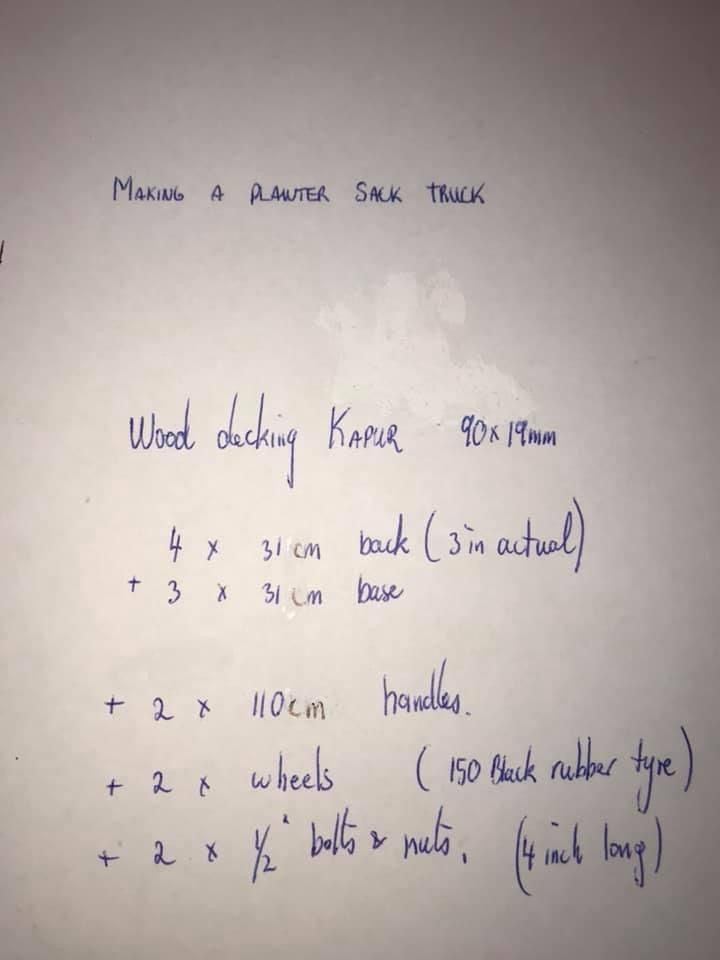 MAKING A PLANTER SACK TRUCK
Wood decking KAPUR 90x19mm
4 x 31 cm back (3 in actual)
+ 3 x 31 cm base
+ 2 x 110cm handles.
+ 2 x wheels (150 Black rubber tyre)
+ 2 x 1/2" bolts & nuts. (4 inch long)